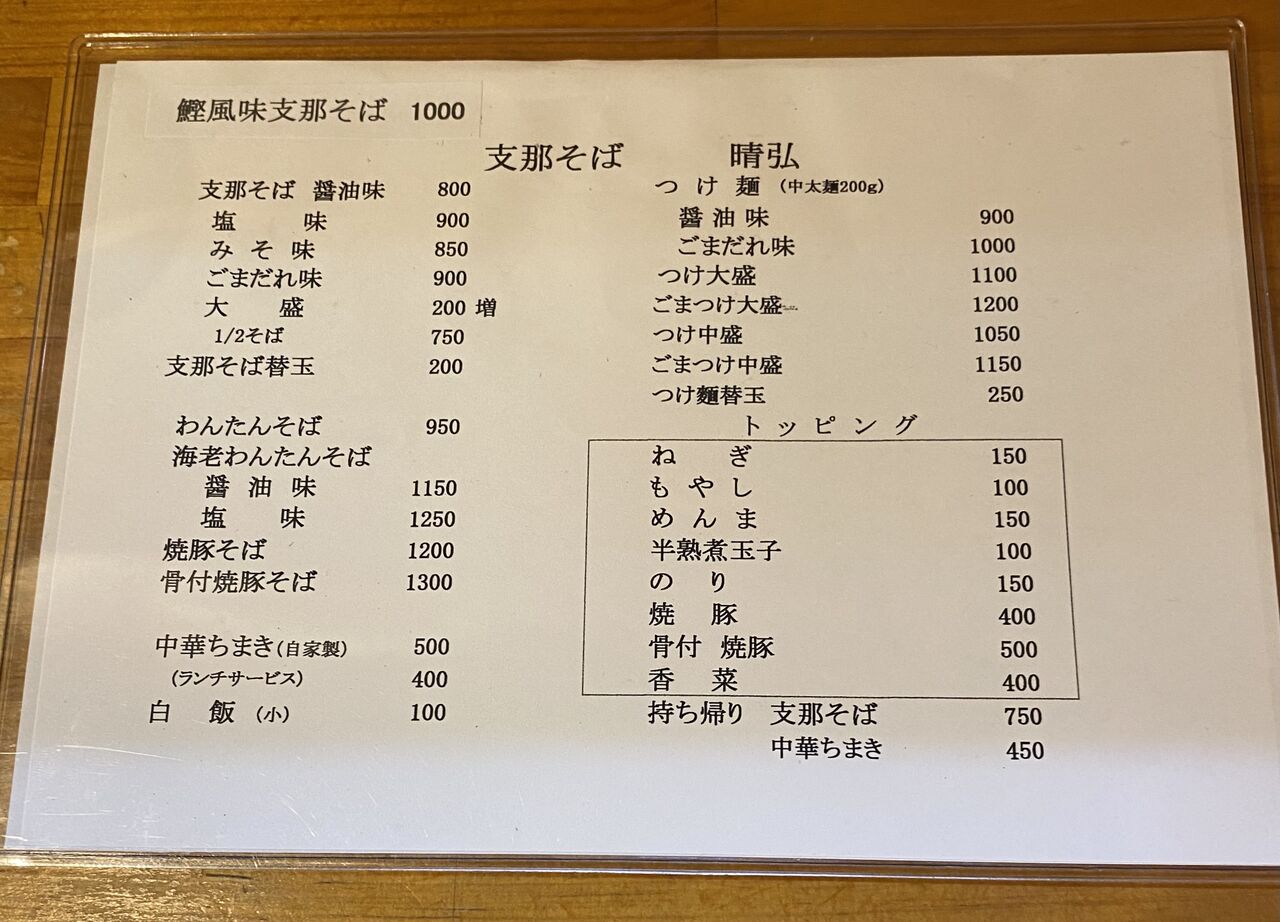 鰹風味支那そば 1000
支那そば 晴弘
支那そば 醤油味 800
塩 味 900
みそ味 850
ごまだれ味 900
大 盛 200 増
1/2そば 750
支那そば替玉 200
わんたんそば 950
海老わんたんそば
醤油味 1150
塩 味 1250
焼豚そば 1200
骨付焼豚そば 1300
中華ちまき(自家製) 500
(ランチサービス) 400
白 飯 (小) 100
つけ麺 (中太麺200g)
醤油味 900
ごまだれ味 1000
つけ大盛 1100
ごまつけ大盛 1200
つけ中盛 1050
ごまつけ中盛 1150
つけ麺替玉 250
トッピング
ね ぎ 150
もやし 100
めんま 150
半熟煮玉子 100
の り 150
焼 豚 400
骨付 焼豚 500
香 菜 400
持ち帰り 支那そば 750
中華ちまき 450